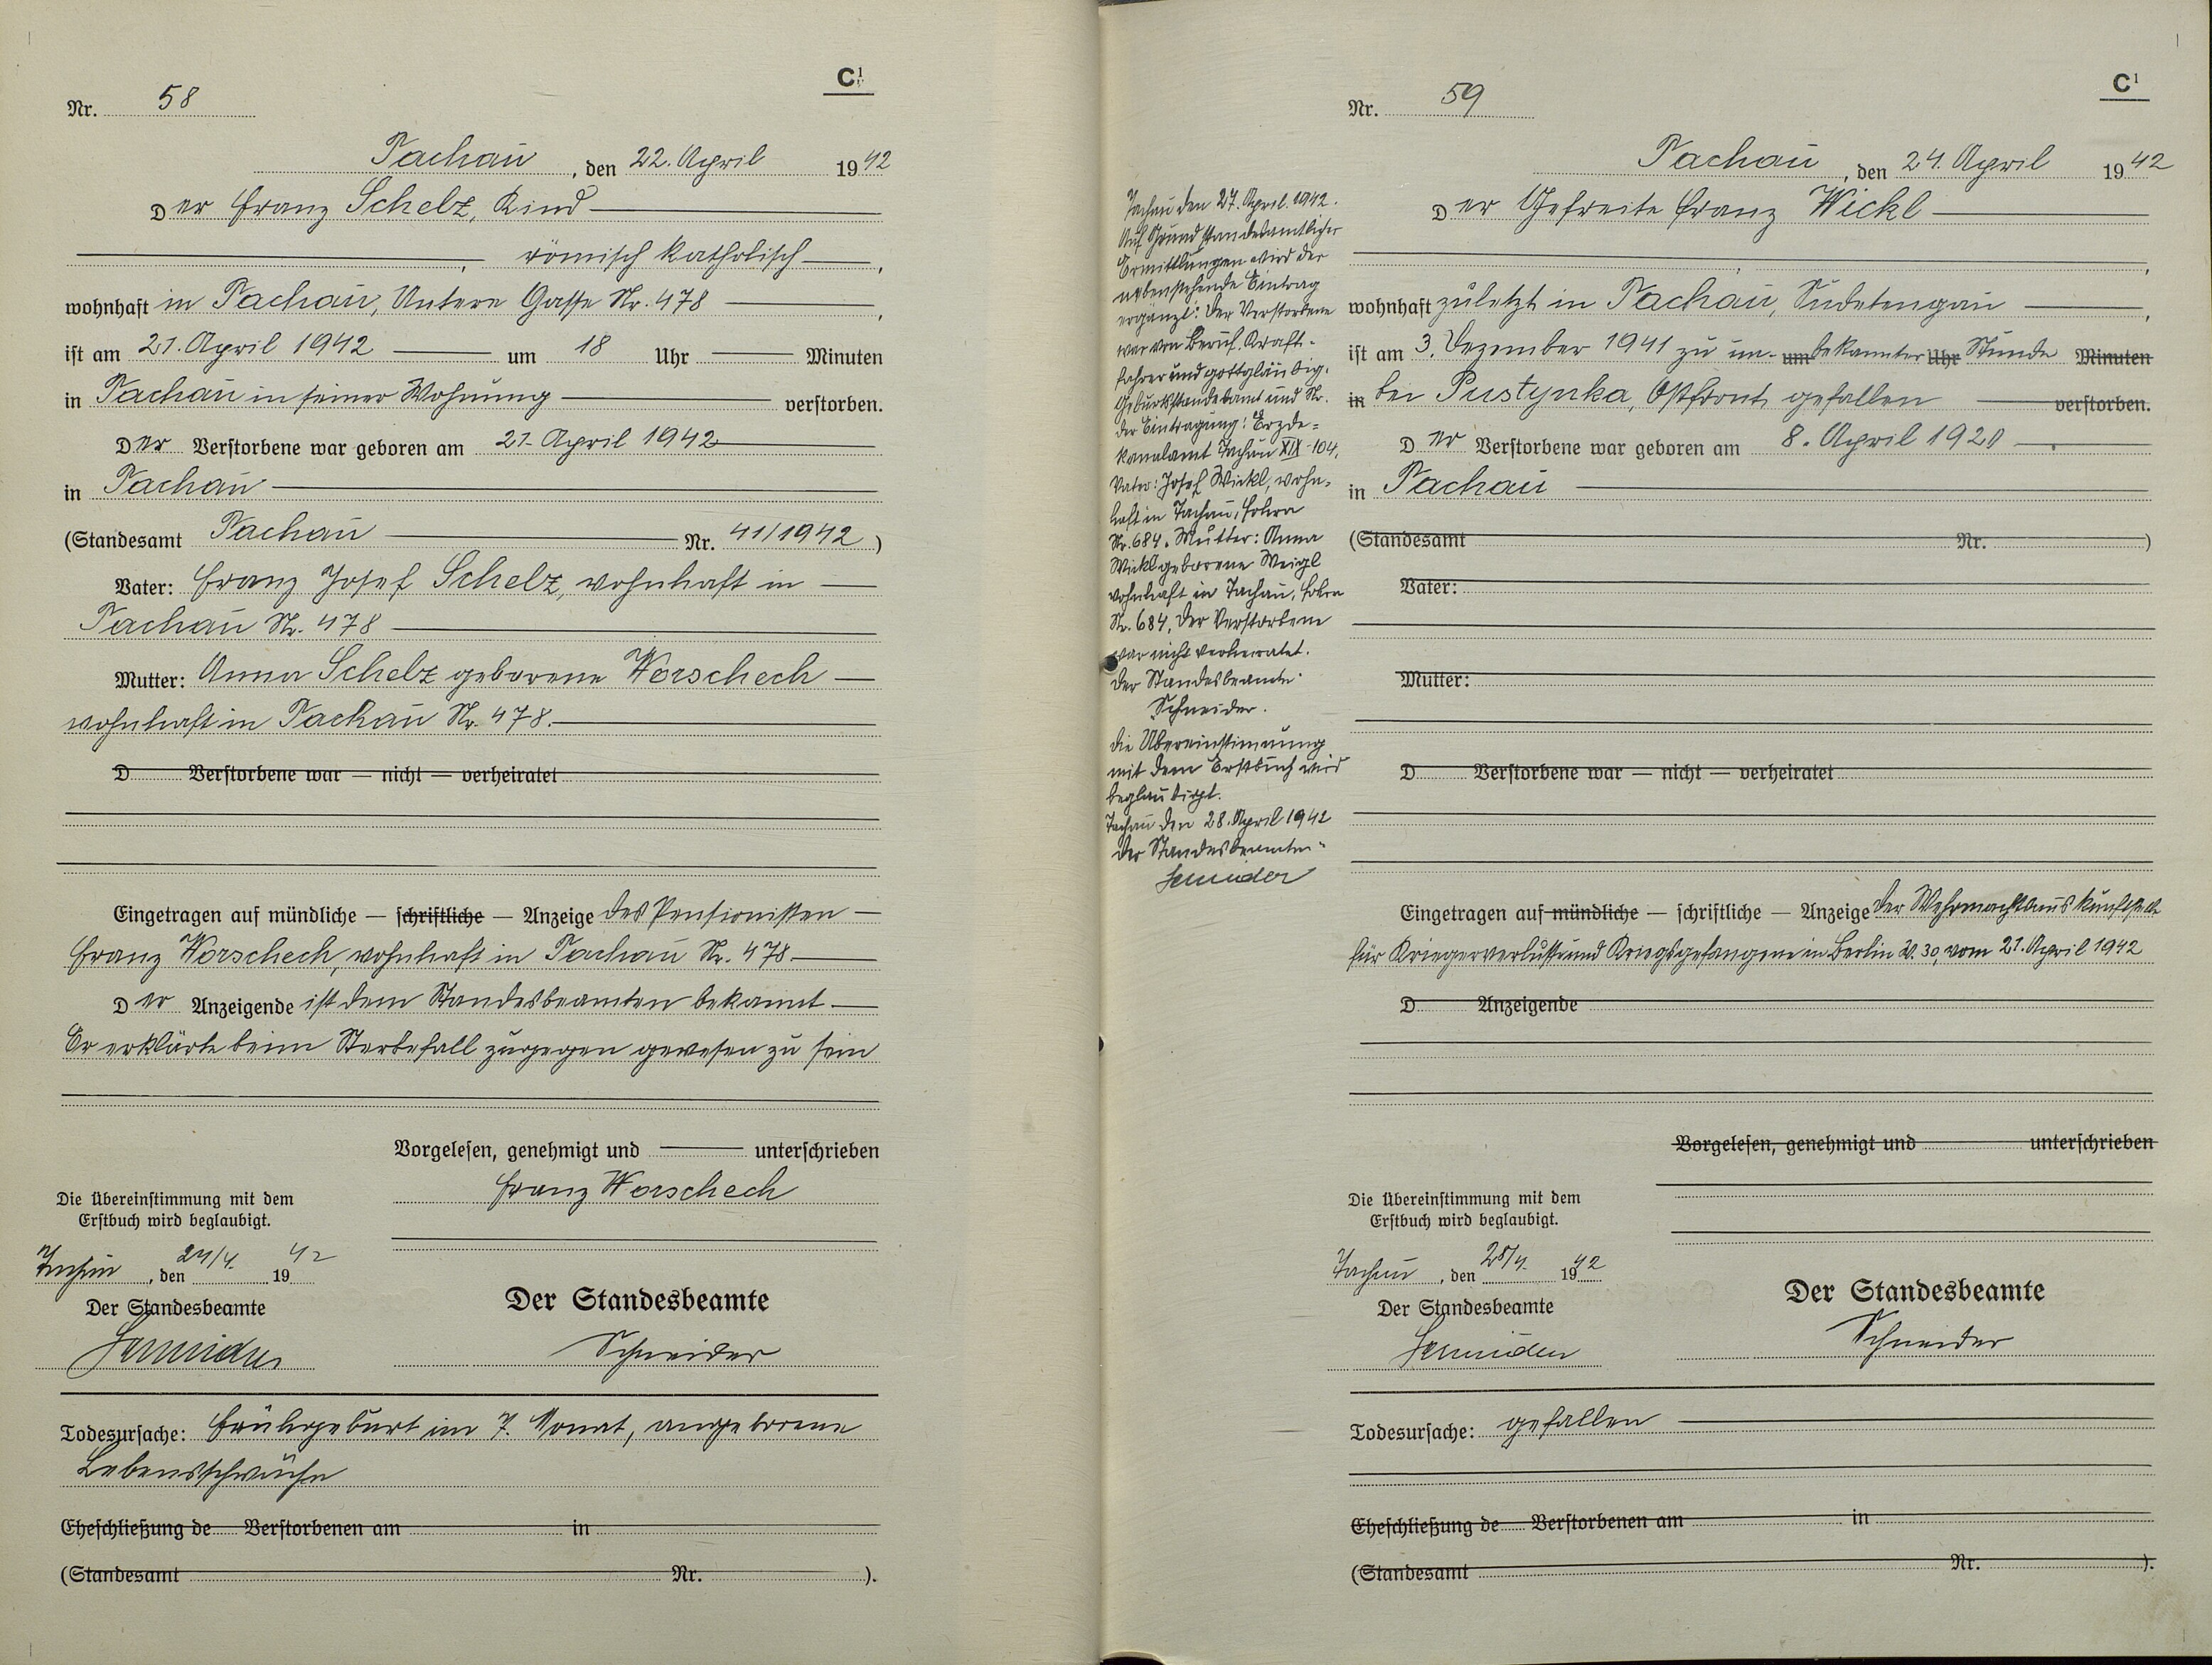 C¹
Nr. 58
Tachau, den 22. April 1942
Der Franz Schelz, Kind
, römisch katholisch,
wohnhaft in Tachau, Untere Gasse Nr. 478,
ist am 21. April 1942 um 18 Uhr Minuten
in Tachau in seiner Wohnung verstorben.
Der Verstorbene war geboren am 21. April 1942
in Tachau
(Standesamt Tachau Nr. 41/1942)
Vater: Franz Josef Schelz, wohnhaft in
Tachau Nr. 478
Mutter: Anna Schelz geborene Worschech
wohnhaft in Tachau Nr. 478.
D Verstorbene war — nicht — verheiratet
Eingetragen auf mündliche — schriftliche — Anzeige des Pensionisten
Franz Worschech, wohnhaft in Tachau Nr. 478.
Der Anzeigende ist dem Standesbeamten bekannt.
Er erklärte beim Sterbefall zugegen gewesen zu sein
Vorgelesen, genehmigt und unterschrieben
Franz Worschech
Die Übereinstimmung mit dem
Erstbuch wird beglaubigt.
Tachau, den 24/4. 1942
Der Standesbeamte
Schneider
Der Standesbeamte
Schneider
Todesursache: Frühgeburt im 7. Monat, angeborene
Lebensschwäche
Eheschließung de Verstorbenen am in
(Standesamt Nr. ).
C¹
Nr. 59
Tachau, den 24. April 1942
Der Gefreite Franz Wickl
, ,
wohnhaft zuletzt in Tachau, Sudetengau,
ist am 3. Dezember 1941 zu un- um bekannter Uhr Stunde Minuten
in bei Pustynka, Ostfront gefallen verstorben.
Der Verstorbene war geboren am 8. April 1920.
in Tachau
(Standesamt Nr. )
Vater:
Mutter:
D Verstorbene war — nicht — verheiratet
Eingetragen auf mündliche — schriftliche — Anzeige der Wehrmachtauskunftstelle
für Kriegerverluste und Kriegsgefangene in Berlin W. 30, vom 21. April 1942
D Anzeigende
Vorgelesen, genehmigt und unterschrieben
Die Übereinstimmung mit dem
Erstbuch wird beglaubigt.
Tachau, den 28/4. 1942
Der Standesbeamte
Schneider
Der Standesbeamte
Schneider
Todesursache: gefallen
Eheschließung de Verstorbenen am in
(Standesamt Nr. ).
Tachau den 27. April 1942.
Auf Grund standesamtlicher
Ermittlungen wird der
nebenstehende Eintrag
ergänzt: Der Verstorbene
war von Beruf Kraft-
fahrer und gottgläubig.
Geburtsstandesamt und Nr.
der Eintragung: Erzde-
kanalamt Tachau XIX-104.
Vater: Josef Wickl, wohn-
haft in Tachau,
Nr. 684. Mutter: Anna
Wickl geborene Weigl
wohnhaft in Tachau,
Nr. 684. Der Verstorbene
war nicht verheiratet.
Der Standesbeamte:
Schneider.
Die Übereinstimmung
mit dem Erstbuch wird
beglaubigt.
Tachau den 28. April 1942
Der Standesbeamte:
Schneider